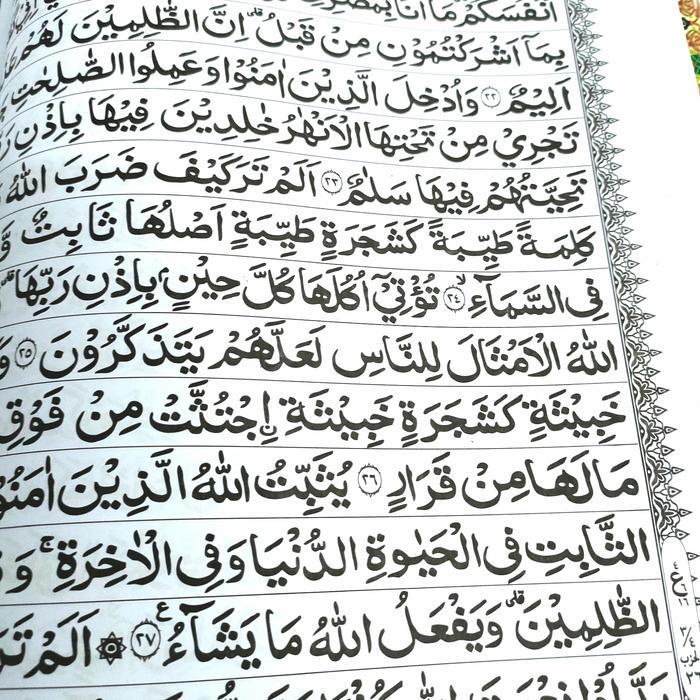 اَنْفُسَكُمْ مَآ اَنَا۠
بِمَآ اَشْرَكْتُمُوْنِ مِنْ قَبْلُ ۗ اِنَّ الظّٰلِمِيْنَ لَهُمْ
اَلِيْمٌ ٢٢ وَاُدْخِلَ الَّذِيْنَ اٰمَنُوْا وَعَمِلُوا الصّٰلِحٰتِ
تَجْرِيْ مِنْ تَحْتِهَا الْاَنْهٰرُ خٰلِدِيْنَ فِيْهَا بِاِذْنِ
تَحِيَّتُهُمْ فِيْهَا سَلٰمٌ ٢٣ اَلَمْ تَرَ كَيْفَ ضَرَبَ اللّٰهُ
كَلِمَةً طَيِّبَةً كَشَجَرَةٍ طَيِّبَةٍ اَصْلُهَا ثَابِتٌ
فِى السَّمَآءِ ۙ ٢٤ تُؤْتِيْٓ اُكُلَهَا كُلَّ حِيْنٍ ۢ بِاِذْنِ رَبِّهَا
اللّٰهُ الْاَمْثَالَ لِلنَّاسِ لَعَلَّهُمْ يَتَذَكَّرُوْنَ ٢٥
خَبِيْثَةٍ كَشَجَرَةٍ خَبِيْثَةِ ࣙاجْتُثَّتْ مِنْ فَوْقِ
مَا لَهَا مِنْ قَرَارٍ ٢٦ يُثَبِّتُ اللّٰهُ الَّذِيْنَ اٰمَنُوْا
الثَّابِتِ فِى الْحَيٰوةِ الدُّنْيَا وَفِى الْاٰخِرَةِ ۚ
الظّٰلِمِيْنَ ۗ وَيَفْعَلُ اللّٰهُ مَا يَشَآءُ ࣖ ٢٧ ۞ اَلَمْ تَرَ